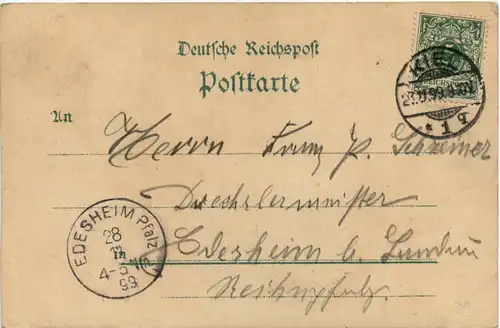 Deutsche Reichspost
Postkarte
KIEL
REICHSPOST
99
* 1 g
An
Herrn Franz P. Schreiner
Drechslermeister
EDESHEIM Pfalz
28
4-5 Nm
99
in
Edesheim b. Landau
Rheinpfalz.